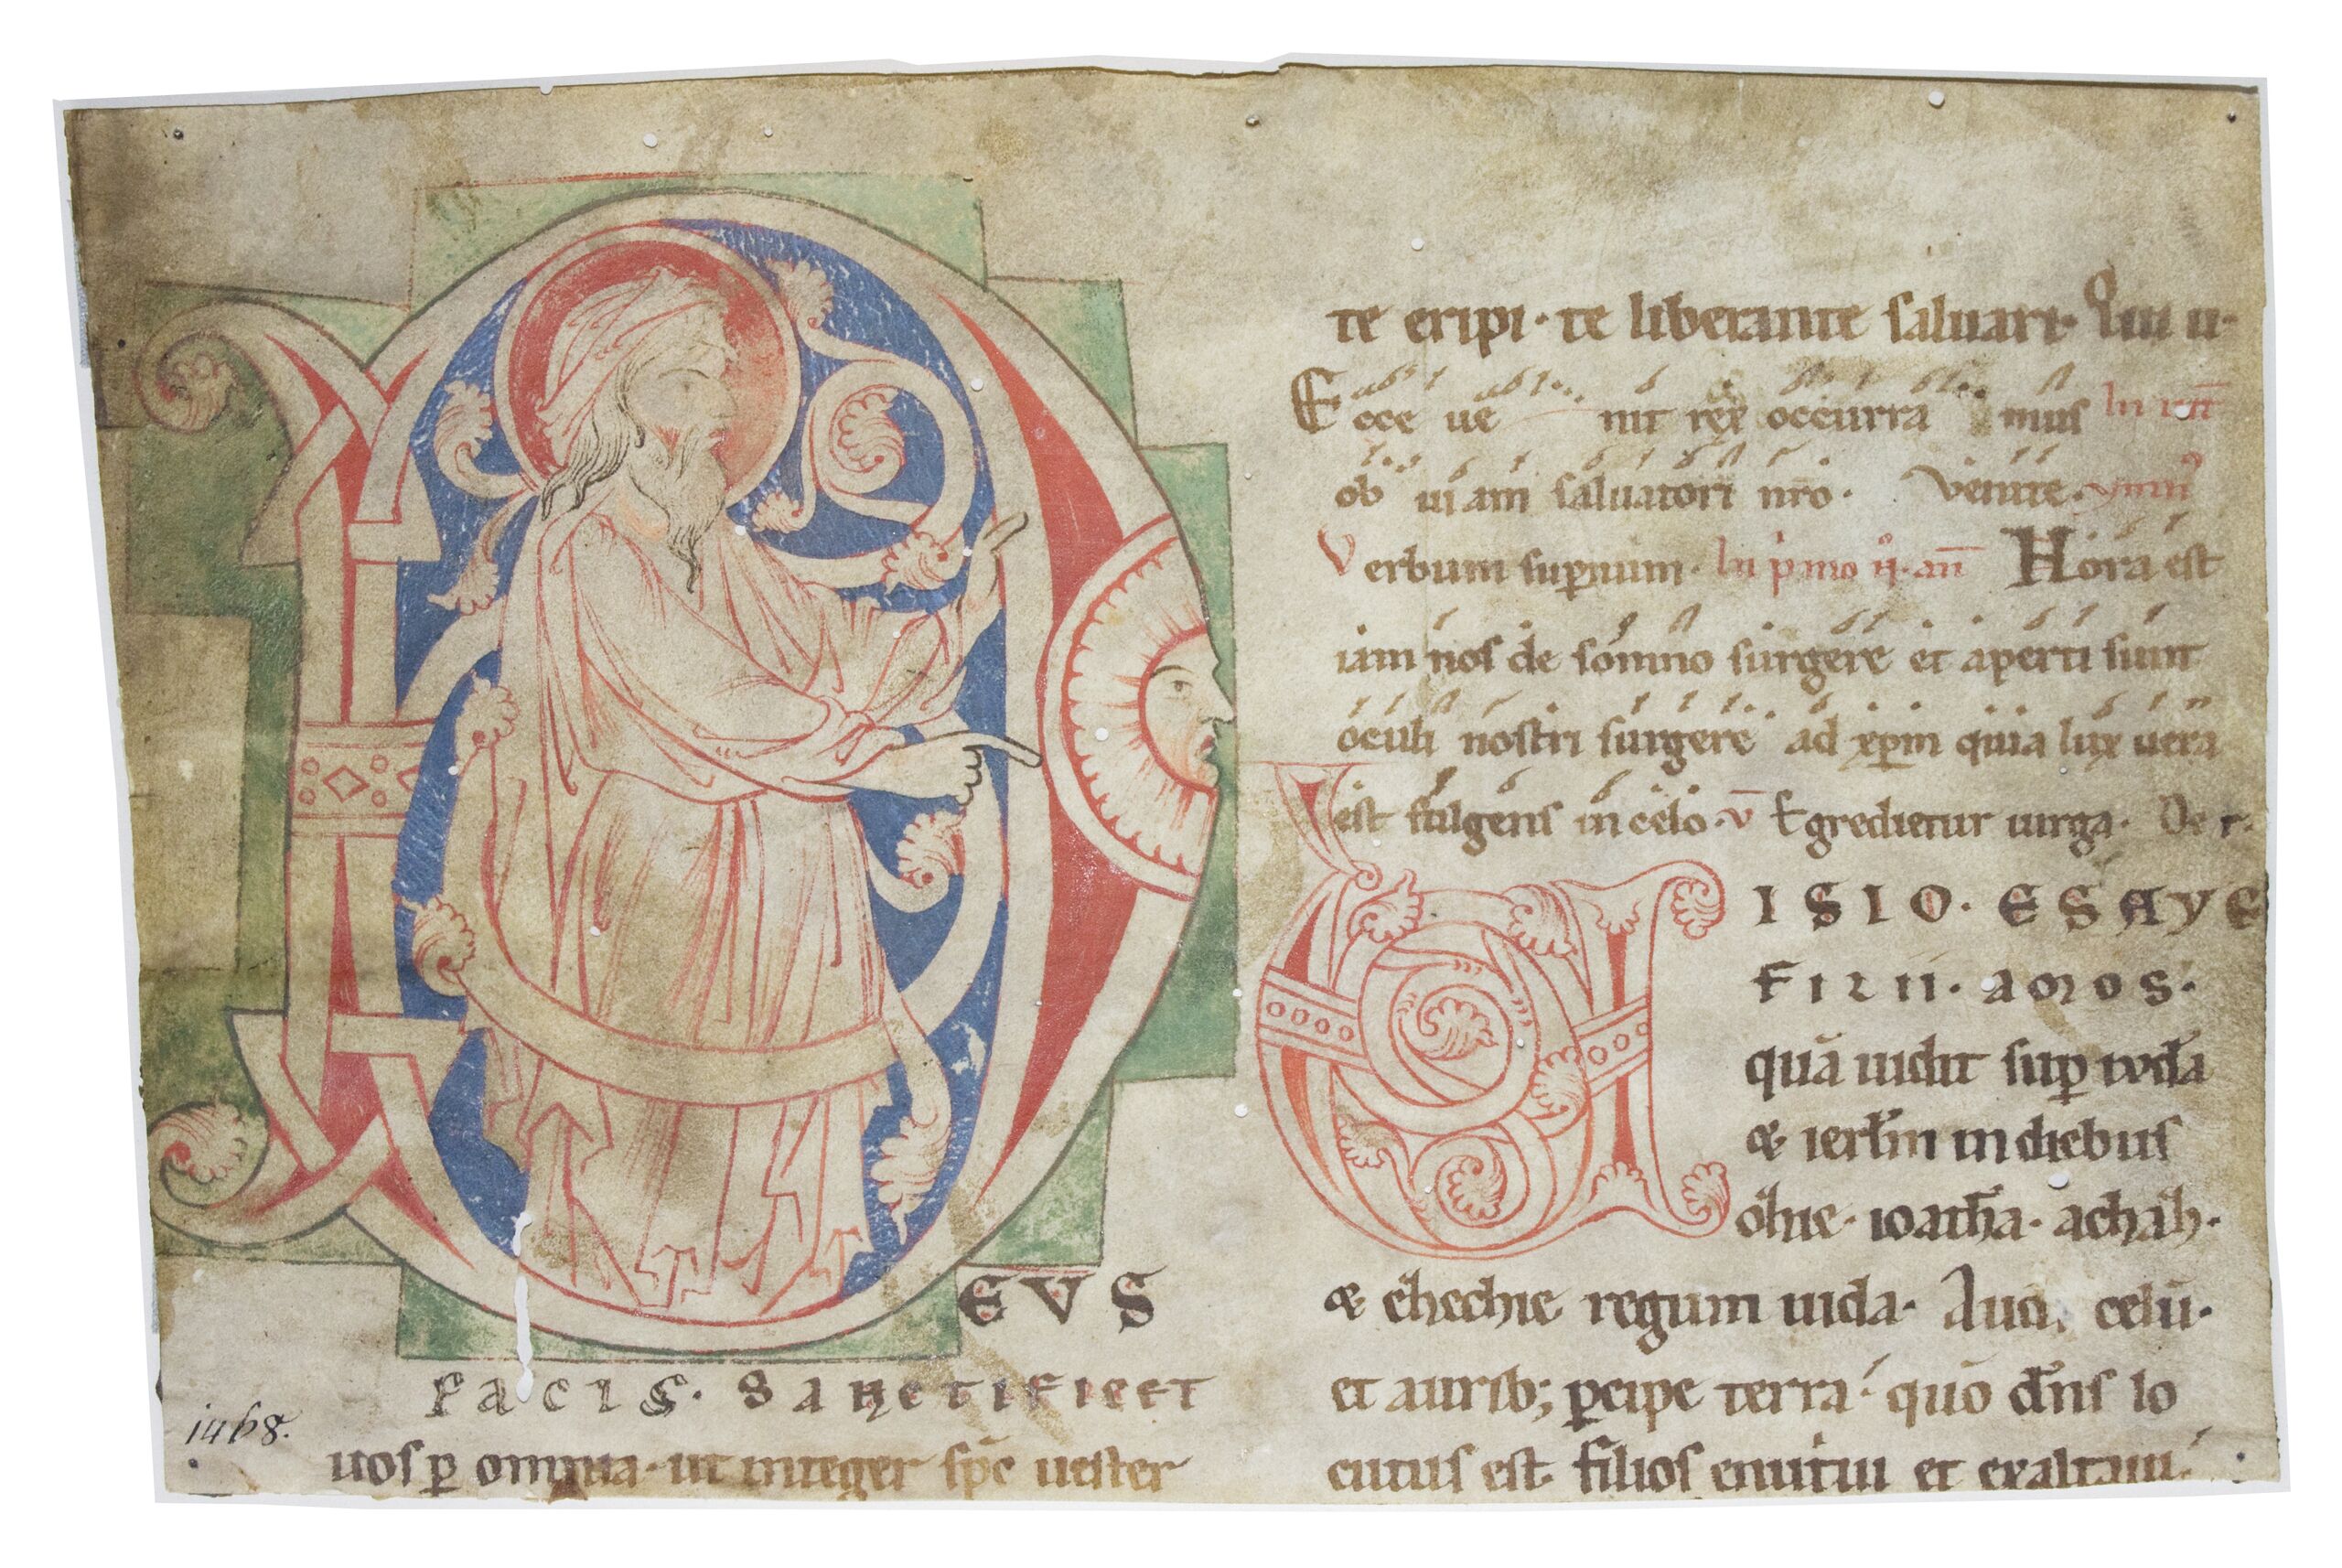 EVS
PACIS. SANCTIFICET
1468.
uos ꝑ omnia. ut integer sp̄c uester
te eripi. te liberante saluari. Qui u.
Ecce ue nit rex occurra mus
ob uiam saluatori nr̄o. Venite.
Verbum suꝑnum. In p̍mo n̊. an̄ Hora est
iam nos de somno surgere et aperti sunt
oculi nostri surgere ad xp̄m quia lux uera
est fulgens in celo. v̄ Egredietur uirga. De r.
VISIO. ESAYE
FILII. AMOS.
quā uidit suꝑ iudā
& ierl̄m in diebus
ozhie. ioathā. achaz.
& ezhechie regum iuda. Audi celū.
et aurib; ꝑcipe terra. quō dn̄s lo
cutus est. filios enutriui et exaltaui.